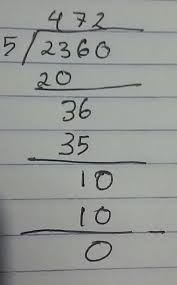 472
5 2360
20
36
35
10
10
0